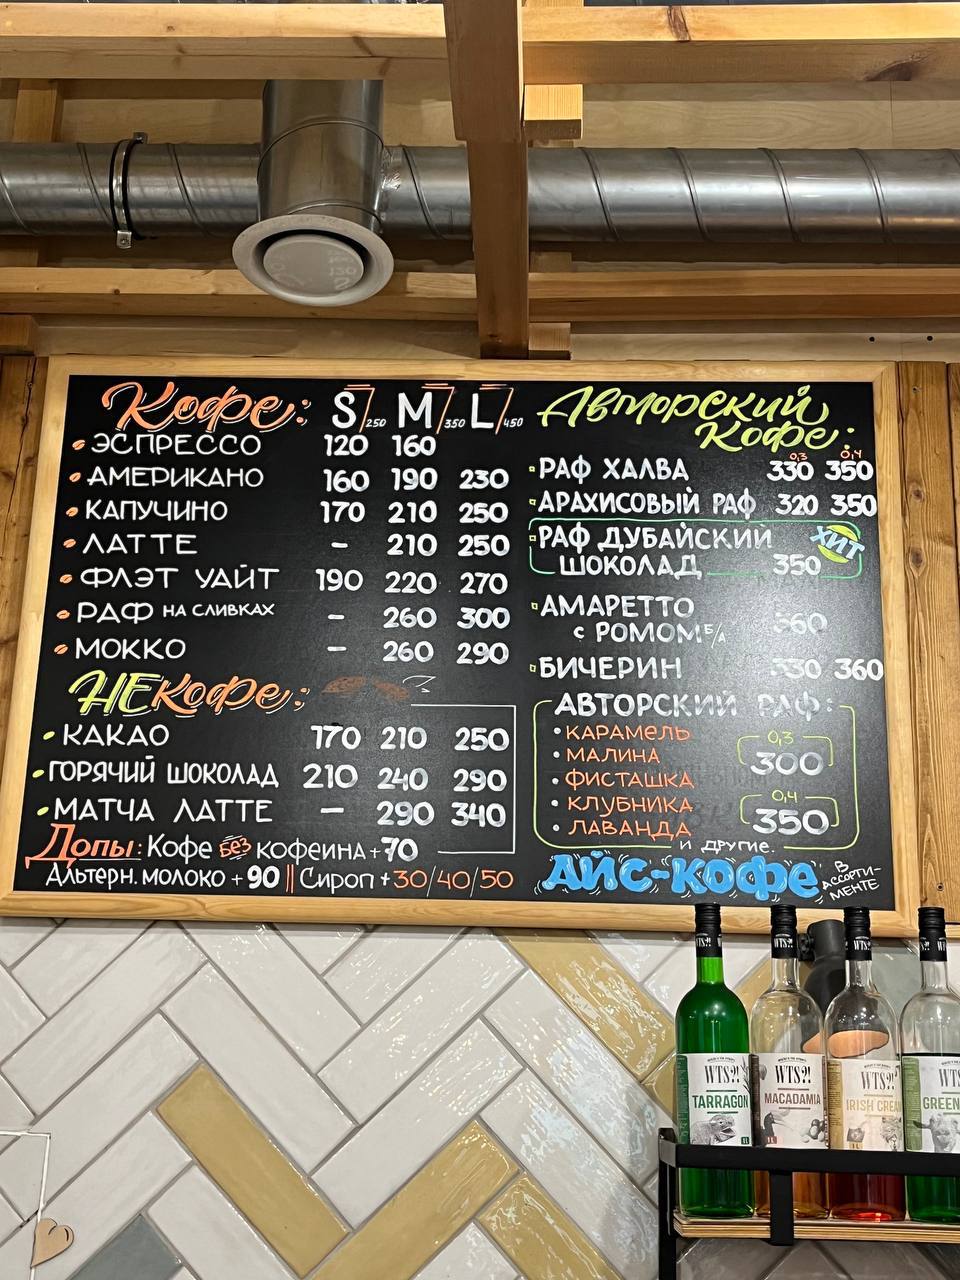 Кофе: S/250 M/350 L/450
ЭСПРЕССО 120 160
АМЕРИКАНО 160 190 230
КАПУЧИНО 170 210 250
ЛАТТЕ – 210 250
ФЛЭТ УАЙТ 190 220 270
РАФ НА СЛИВКАХ – 260 300
МОККО – 260 290
НЕкофе:
КАКАО 170 210 250
ГОРЯЧИЙ ШОКОЛАД 210 240 290
МАТЧА ЛАТТЕ – 290 340
Допы: Кофе без кофеина +70
Альтерн. молоко + 90 || Сироп +30/40/50
Авторский
Кофе:
0,3 0,4
РАФ ХАЛВА 330 350
АРАХИСОВЫЙ РАФ 320 350
РАФ ДУБАЙСКИЙ ХИТ
ШОКОЛАД 350
АМАРЕТТО
с РОМОМ Б/А 360
БИЧЕРИН 330 360
АВТОРСКИЙ РАФ:
• КАРАМЕЛЬ 0,3
• МАЛИНА 300
• ФИСТАШКА
• КЛУБНИКА 0,4
• ЛАВАНДА 350
и другие.
АЙС-кофе В АССОРТИ-
МЕНТЕ
WTS?! WTS?! WTS?! WTS
TARRAGON MACADAMIA IRISH CREA GREEN
1L